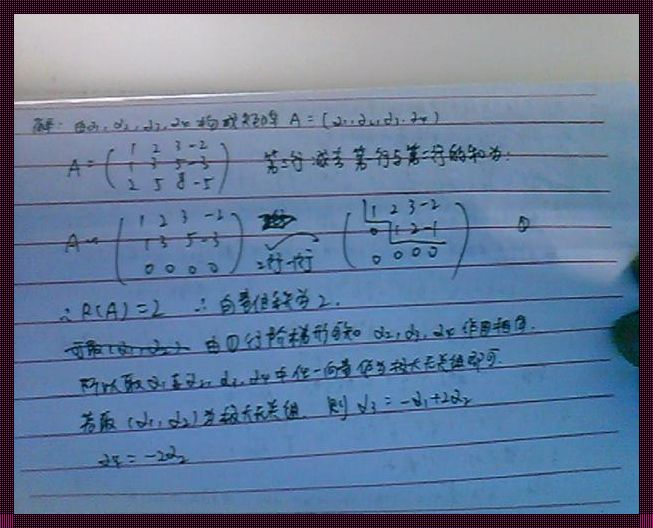 解: 由α₁, α₂, α₃, α₄ 构成矩阵 A = (α₁, α₂, α₃, α₄)
A = ( 1 2 3 -2
1 3 5 -3
2 5 8 -5 ) 第三行减去第一行与第二行的和为:
A ~ ( 1 2 3 -2
1 3 5 -3
0 0 0 0 ) 二行-一行 ( 1 2 3 -2
0 1 2 -1
0 0 0 0 ) ①
∴ R(A) = 2 ∴ 向量组秩为 2.
由①行阶梯形可知 α₂, α₃, α₄ 作用相同.
所以取 α₁ 与 α₂, α₃, α₄ 中任一向量作为极大无关组即可.
若取 (α₁, α₂) 为极大无关组. 则 α₃ = -α₁+2α₂
α₄ = -2α₂